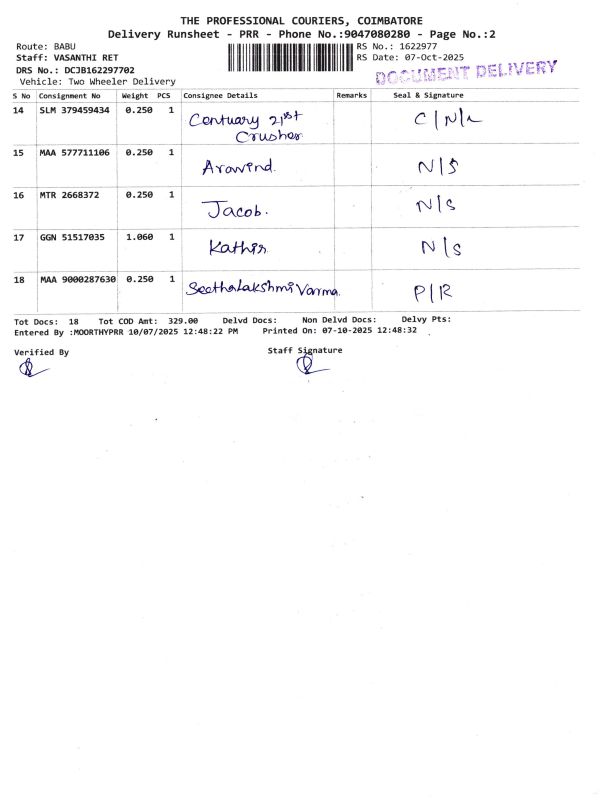 THE PROFESSIONAL COURIERS, COIMBATORE
Delivery Runsheet - PRR - Phone No.:9047080280 - Page No.:2
Route: BABU
RS No.: 1622977
Staff: VASANTHI RET
RS Date: 07-Oct-2025
DRS No.: DCJB162297702
DOCUMENT DELIVERY
Vehicle: Two Wheeler Delivery
S No Consignment No Weight PCS Consignee Details Remarks Seal & Signature
14 SLM 379459434 0.250 1 Centuary 21st C/N/L
Crusher
15 MAA 577711106 0.250 1 Aravind. N/S
16 MTR 2668372 0.250 1 Jacob. N/S
17 GGN 51517035 1.060 1 Kathir N/S
18 MAA 9000287630 0.250 1 Seethalakshmi Varma. P/R
Tot Docs: 18 Tot COD Amt: 329.00 Delvd Docs: Non Delvd Docs: Delvy Pts:
Entered By :MOORTHYPRR 10/07/2025 12:48:22 PM Printed On: 07-10-2025 12:48:32
Verified By Staff Signature